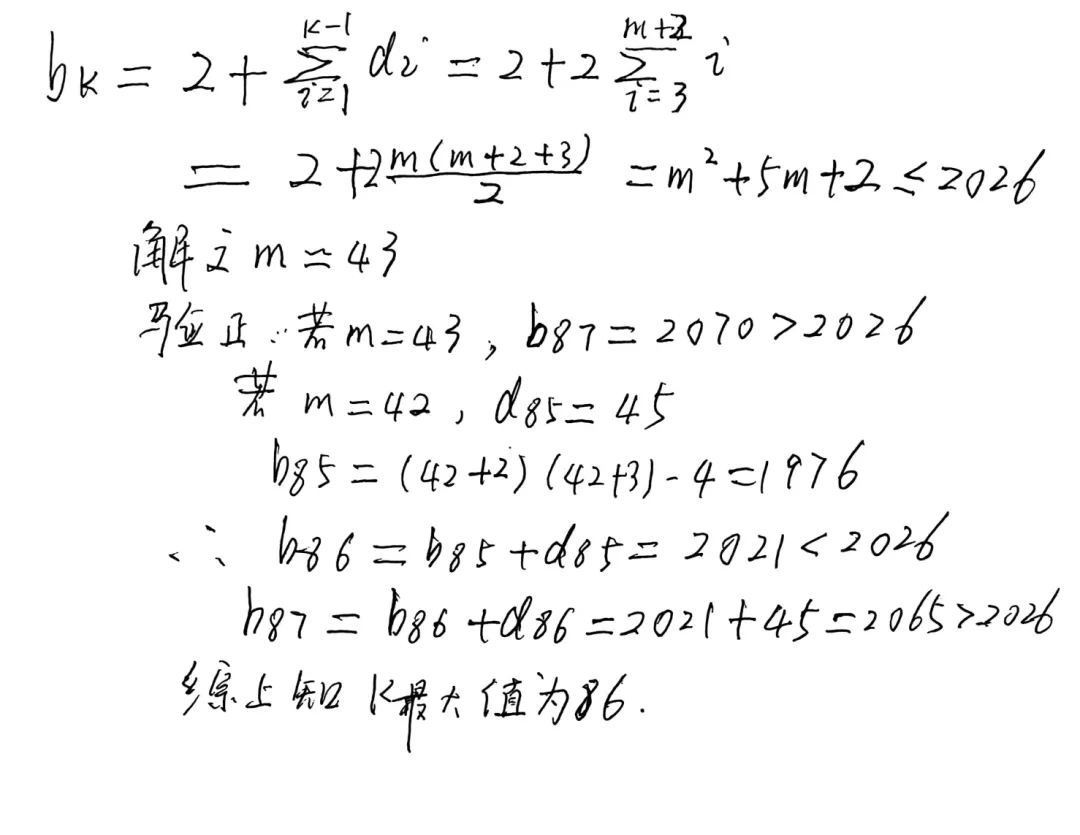 bₖ = 2 + ∑_{i=1}^{k-1} dᵢ = 2 + 2∑_{i=3}^{m+2} i
= 2 + 2 m(m+2+3)/2 = m² + 5m + 2 ≤ 2026
解之 m = 43
验证: 若 m = 43, b87 = 2070 > 2026
若 m = 42, d85 = 45
b85 = (42+2)(42+3) - 4 = 1976
∴ b86 = b85 + d85 = 2021 < 2026
b87 = b86 + d86 = 2021 + 45 = 2065 > 2026
综上知 k最大值为86.